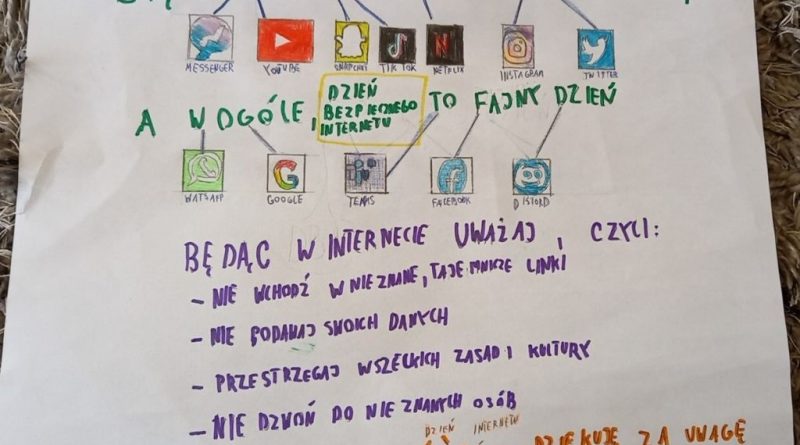 MESSENGER YOUTUBE SNAPCHAT TIK TOK NETFLIX INSTAGRAM TWITTER
A WOGÓLE, DZIEŃ BEZPIECZNEGO INTERNETU TO FAJNY DZIEŃ
WATSAPP GOOGLE TEAMS FACEBOOK DISCORD
BĘDĄC W INTERNECIE UWAŻAJ, CZYLI:
- NIE WCHODŹ W NIEZNANE, TAJEMNICZE LINKI
- NIE PODAWAJ SWOICH DANYCH
- PRZESTRZEGAJ WSZELKICH ZASAD I KULTURY
- NIE DZWOŃ DO NIEZNANYCH OSÓB
DZIEŃ INTERNETU
DZIĘKUJĘ ZA UWAGĘ